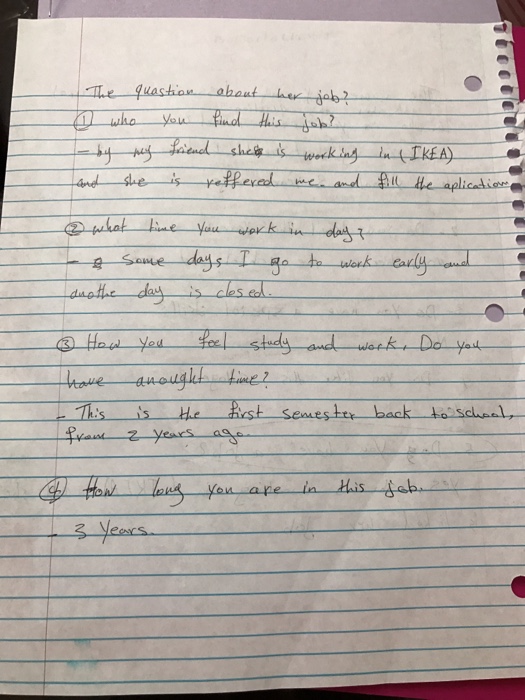 The quastion about her job?
① who you find this job?
- by my friend she is working in (IKEA)
and she is reffered me. and fill the aplication
② what time you work in day?
- Some days I go to work early and
anothe day is closed.
③ How you feel study and work, Do you
have anought time?
- This is the first semester back to school,
from 2 years ago.
④ How long you are in this job.
- 3 years.